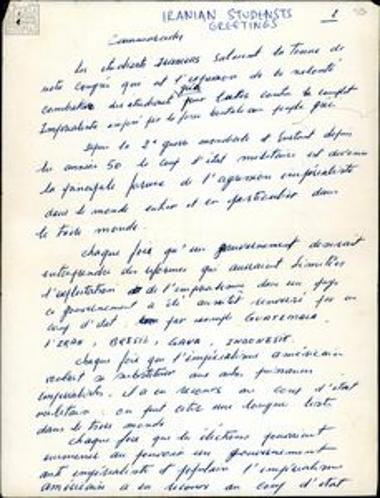 IRANIAN STUDENSTS
GREETINGS
1
Commarades
Les etudiants Iraniens saluent la tenue de
votre congrès qui est l'expression de la volonté
combative des etudiants grec pour lutter contre le complot
Imperialiste imposé par la force brutale au peuple grec.
Depuis la 2e guerre mondiale et surtout depuis
les années 50 le coup d'etat militaire est devenu
la principale forme de l'agression impérialiste
dans le monde entier et en particulier dans
le tiers monde.
chaque fois qu'un gouvernement desirait
entreprendre des reformes qui auraient limitées
l'exploitation de l'imperialisme dans un pays
ce gouvernement a été aussitot renversé par un
coup d'etat : par exemple GUATEMALA,
l'IRAN, BRESIL, GANA, INDONESIE.
chaque fois que l'impérialisme américain
voulait se substituer aux autres puissances
imperialistes, il a eu recours au coup d'etat
militaire : on peut citer une longue liste
dans le tiers monde
chaque fois que les élections pouvaient
emmener au pouvoir un gouvernement
anti impérialiste et populaire l'impérialisme
américain a eu recours au coup d'etat